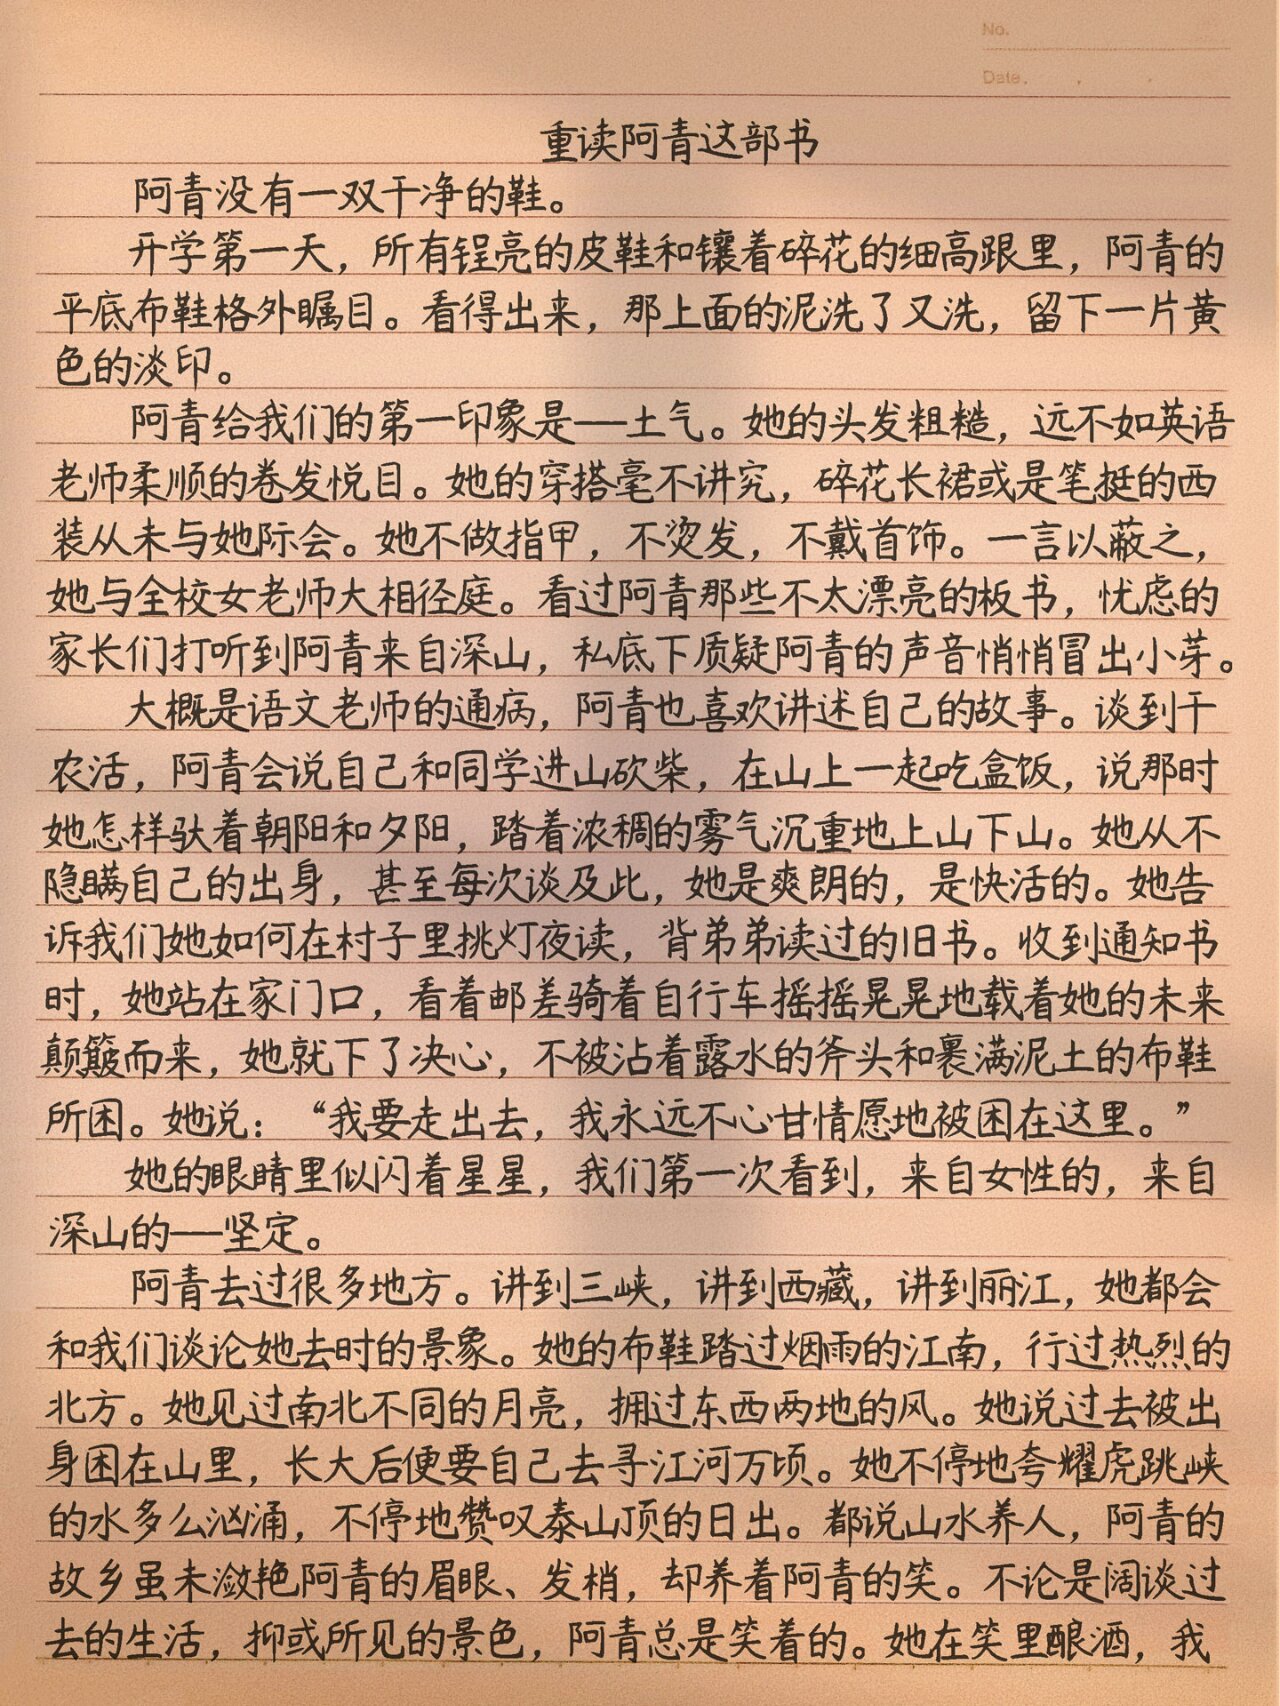 No.
Date.
重读阿青这部书
阿青没有一双干净的鞋。
开学第一天，所有锃亮的皮鞋和镶着碎花的细高跟里，阿青的
平底布鞋格外瞩目。看得出来，那上面的泥洗了又洗，留下一片黄
色的淡印。
阿青给我们的第一印象是——土气。她的头发粗糙，远不如英语
老师柔顺的卷发悦目。她的穿搭毫不讲究，碎花长裙或是笔挺的西
装从未与她际会。她不做指甲，不烫发，不戴首饰。一言以蔽之，
她与全校女老师大相径庭。看过阿青那些不太漂亮的板书，忧虑的
家长们打听到阿青来自深山，私底下质疑阿青的声音悄悄冒出小芽。
大概是语文老师的通病，阿青也喜欢讲述自己的故事。谈到干
农活，阿青会说自己和同学进山砍柴，在山上一起吃盒饭，说那时
她怎样驮着朝阳和夕阳，踏着浓稠的雾气沉重地上山下山。她从不
隐瞒自己的出身，甚至每次谈及此，她是爽朗的，是快活的。她告
诉我们她如何在村子里挑灯夜读，背弟弟读过的旧书。收到通知书
时，她站在家门口，看着邮差骑着自行车摇摇晃晃地载着她的未来
颠簸而来，她就下了决心，不被沾着露水的斧头和裹满泥土的布鞋
所困。她说：“我要走出去，我永远不心甘情愿地被困在这里。”
她的眼睛里似闪着星星，我们第一次看到，来自女性的，来自
深山的——坚定。
阿青去过很多地方。讲到三峡，讲到西藏，讲到丽江，她都会
和我们谈论她去时的景象。她的布鞋踏过烟雨的江南，行过热烈的
北方。她见过南北不同的月亮，拥过东西两地的风。她说过去被出
身困在山里，长大后便要自己去寻江河万顷。她不停地夸耀虎跳峡
的水多么汹涌，不停地赞叹泰山顶的日出。都说山水养人，阿青的
故乡虽未潋艳阿青的眉眼、发梢，却养着阿青的笑。不论是阔谈过
去的生活，抑或所见的景色，阿青总是笑着的。她在笑里酿酒，我